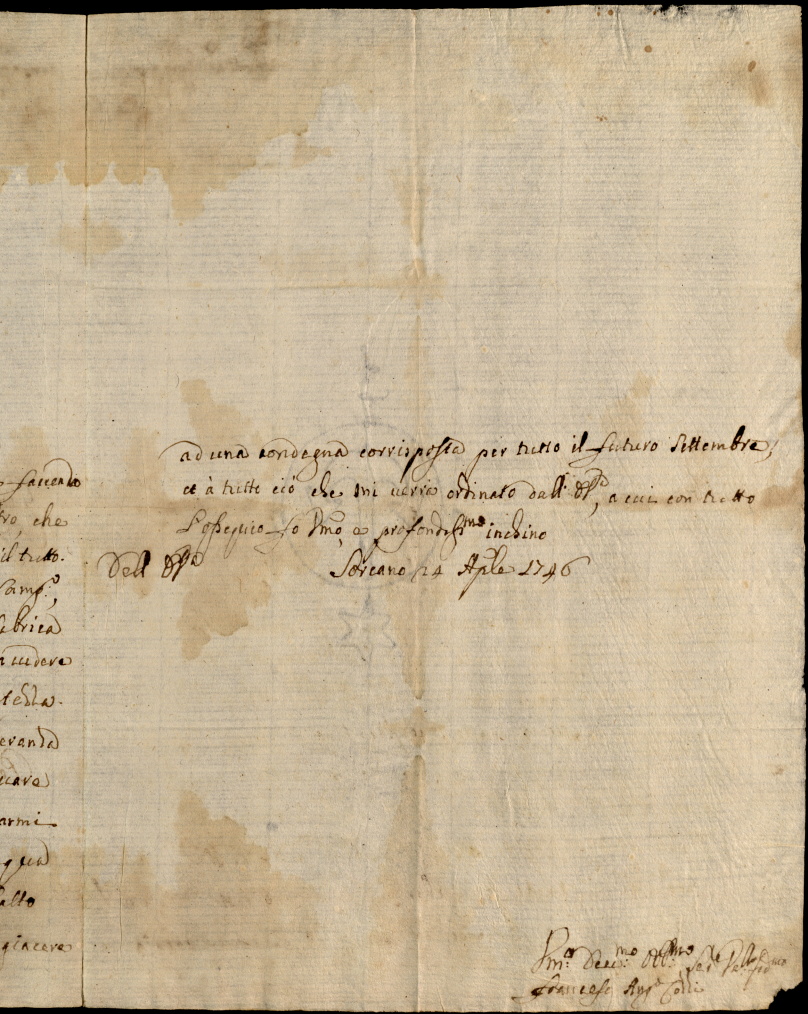 faccendo
che
il tutto.
Samp.,
abrica
cudere
eranza
care
armi
qua
alto
giacere
ad una condegna corrisposta per tutto il futuro Settembre,
et à tutto ciò che mi verrà ordinato dall', a cui con tutto
l'ossequio fo Vmo, e profondissmo inchino
Dell'
Sorcano 24 Aple 1746
Vmo Devmo Obbmo
Francesco Ango